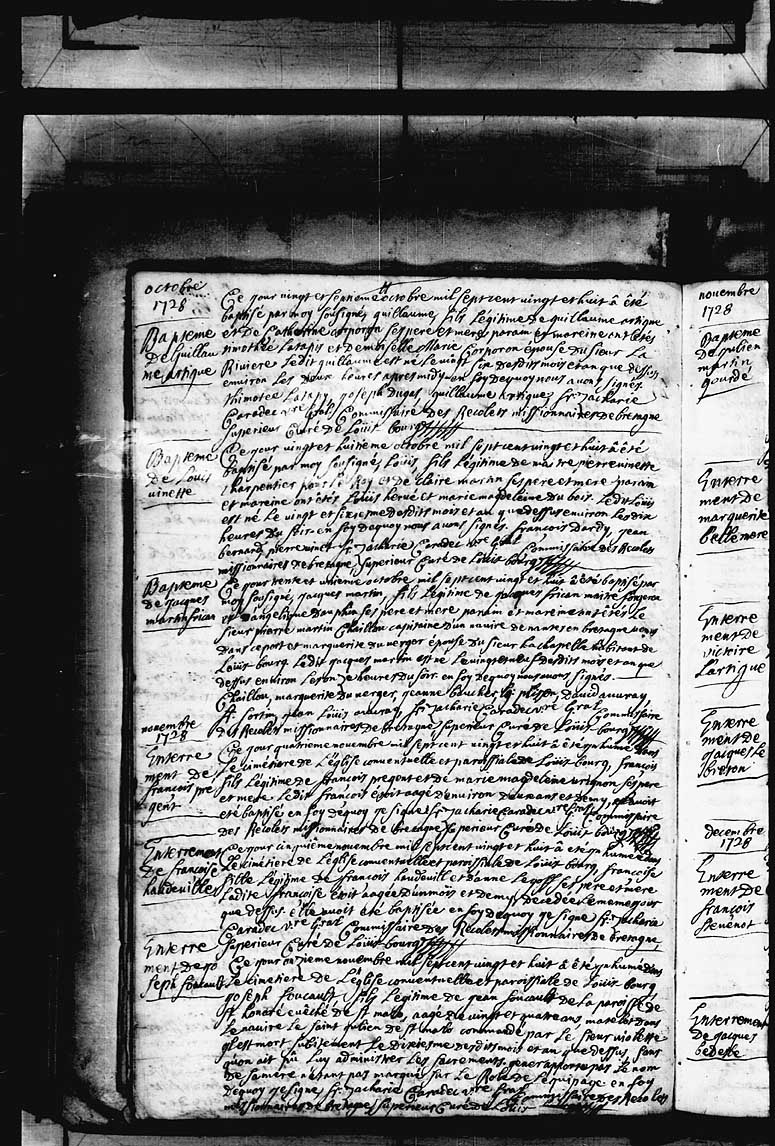 octobre
1728
Bapteme
de guillau
me artigue
Ce jour vingt et septieme octobre mil sept cent vingt et huit â êté
baptisé par moy sousigné guillaume fils légitime de guillaume artigue
et de Catherine corporon ses pere et mere parain et mareine ont êtés
timothée Latapy et demoiselle Marie Corporon épouse du sieur La
Riviere Ledit guillaume est né le vingt desdits mois et an que dessus
environ les deux heures apres midy en foy de quoy nous avons signés
thimotée Latapy, joseph Dugas, guillaume artigue, fr. Zacharie
Caradec vre. Gral. Commissaire des Recolets missionnaires de bretagne
superieur Curé de Loüis bourg
Bapteme
de Louis
uinette
Ce jour vingt et huitieme octobre mil sept cent vingt et huit â êté
baptisé par moy sousignés Louis, fils légitime de maitre pierre uinette
Charpentier pour le Roy et de Claire martin ses pere et mere parain
et mareine ont êtés Louis hervé et marie magdeleine du bois. Ledit Loüis
est né le vingt et sixiesme desdits mois et an que dessus environ les dix
heures du soir en foy de quoy nous avons signés. francois Dardy, jean
bernard, pierre uinet fr. Zacharie Caradec vre. Gral. Commissaire des Recolets
missionnaires de bretagne Superieur Curé de Loüis bourg
Bapteme
de jacques
martin frican
Ce jour trente et unieme octobre mil sept cent vingt et huit â êté baptisé par
moy sousigné, jacques martin, fils légitime de jacques frican maitre forgeron
et d'angelique Dauphin ses pere et mere parain et mareine ont êtés Le
sieur pierre martin Chaillou capitaine d'un navire de nantes en bretagne
dans ce port et marguerite du verger épouse du sieur Lachapelle habitant de
Loüis bourg. Ledit jacques martin est né le vingt et neuf desdits mois et an que
dessus environ les onze heures du soir. en foy de quoy nous avons signés.
Chaillou, marguerite Duverger, jeanne boucher David auuray,
jean Louis auuray, fr. Zacharie Caradec vre. Gral. Commissaire
des Recolets missionnaires de bretagne superieur Curé de Loüis bourg
novembre
1728
Enterre
ment de
francois pre
gent
Ce jour quatrieme novembre mil sept cent vingt et huit â êté ynhumé dans
Le cimetiere de L'église conventuelle et paroissiale de Loüis bourg, francois
fils Légitime de francois pregent et de marie magdeleine urignon ses pere
et mere. Ledit francois étoit aagé d'environ deux ans et demy, et avoit
eté baptisé en foy de quoy je signe fr. Zacharie Caradec vre. Gral. Commissaire
des Recolets missionnaires de bretagne Superieur Curé de Loüis bourg
Enterrement
de francoise
haudeuilles
Ce jour cinquième novembre mil sept cent vingt et huit â êté ynhumée dans
Le cimetiere de L'église conventuelle et paroissiale de Loüis bourg, francoise
fille Légitime de francois haudeuill et d'anne Legoff ses pere et mere
Ladite francoise étoit aagée d'un mois et demy decedée le meme jour
que dessus. elle avoit êté baptisée en foy de quoy je signe fr. Zacharie
Caradec vre. Gral. Commissaire des Recolets missionnaires de bretagne
Superieur Curé de Loüis bourg
Enterre
ment de jo
seph foucault
Ce jour onzieme novembre mil sept cent vingt et huit â êté ynhumé dans
Le cimetiere de L'église conventuelle et paroissiale de Loüis bourg
joseph foucault fils Légitime de jean foucault de la paroisse de
st. honoré evêché de st. malo, aagé de vingt et quatre ans, matelot dans
Le navire Le saint julien de st. malo commandé par le sieur violette
il est mort subitement Le dixiesme desdits mois et an que dessus, sans
qu'on ait pû Luy administrer Les sacrements. je ne rapporte pas Le nom
de sa mere n'etant pas marqué sur Le Rolle de L'équipage. en foy
de quoy je signe fr. Zacharie Caradec vre. Gral. Commissaire des Recolets
missionnaires de bretagne Superieur Curé de Loüis
novembre
1728
Bapteme
de julien
martin
gourdé
Enterre
ment de
marguerite
bellemere
Enterre
ment de
victoire
Lartigue
Enterre
ment de
jacques Le
breton
decembre
1728
Enterre
ment de
francois
Enterrement
de jacques